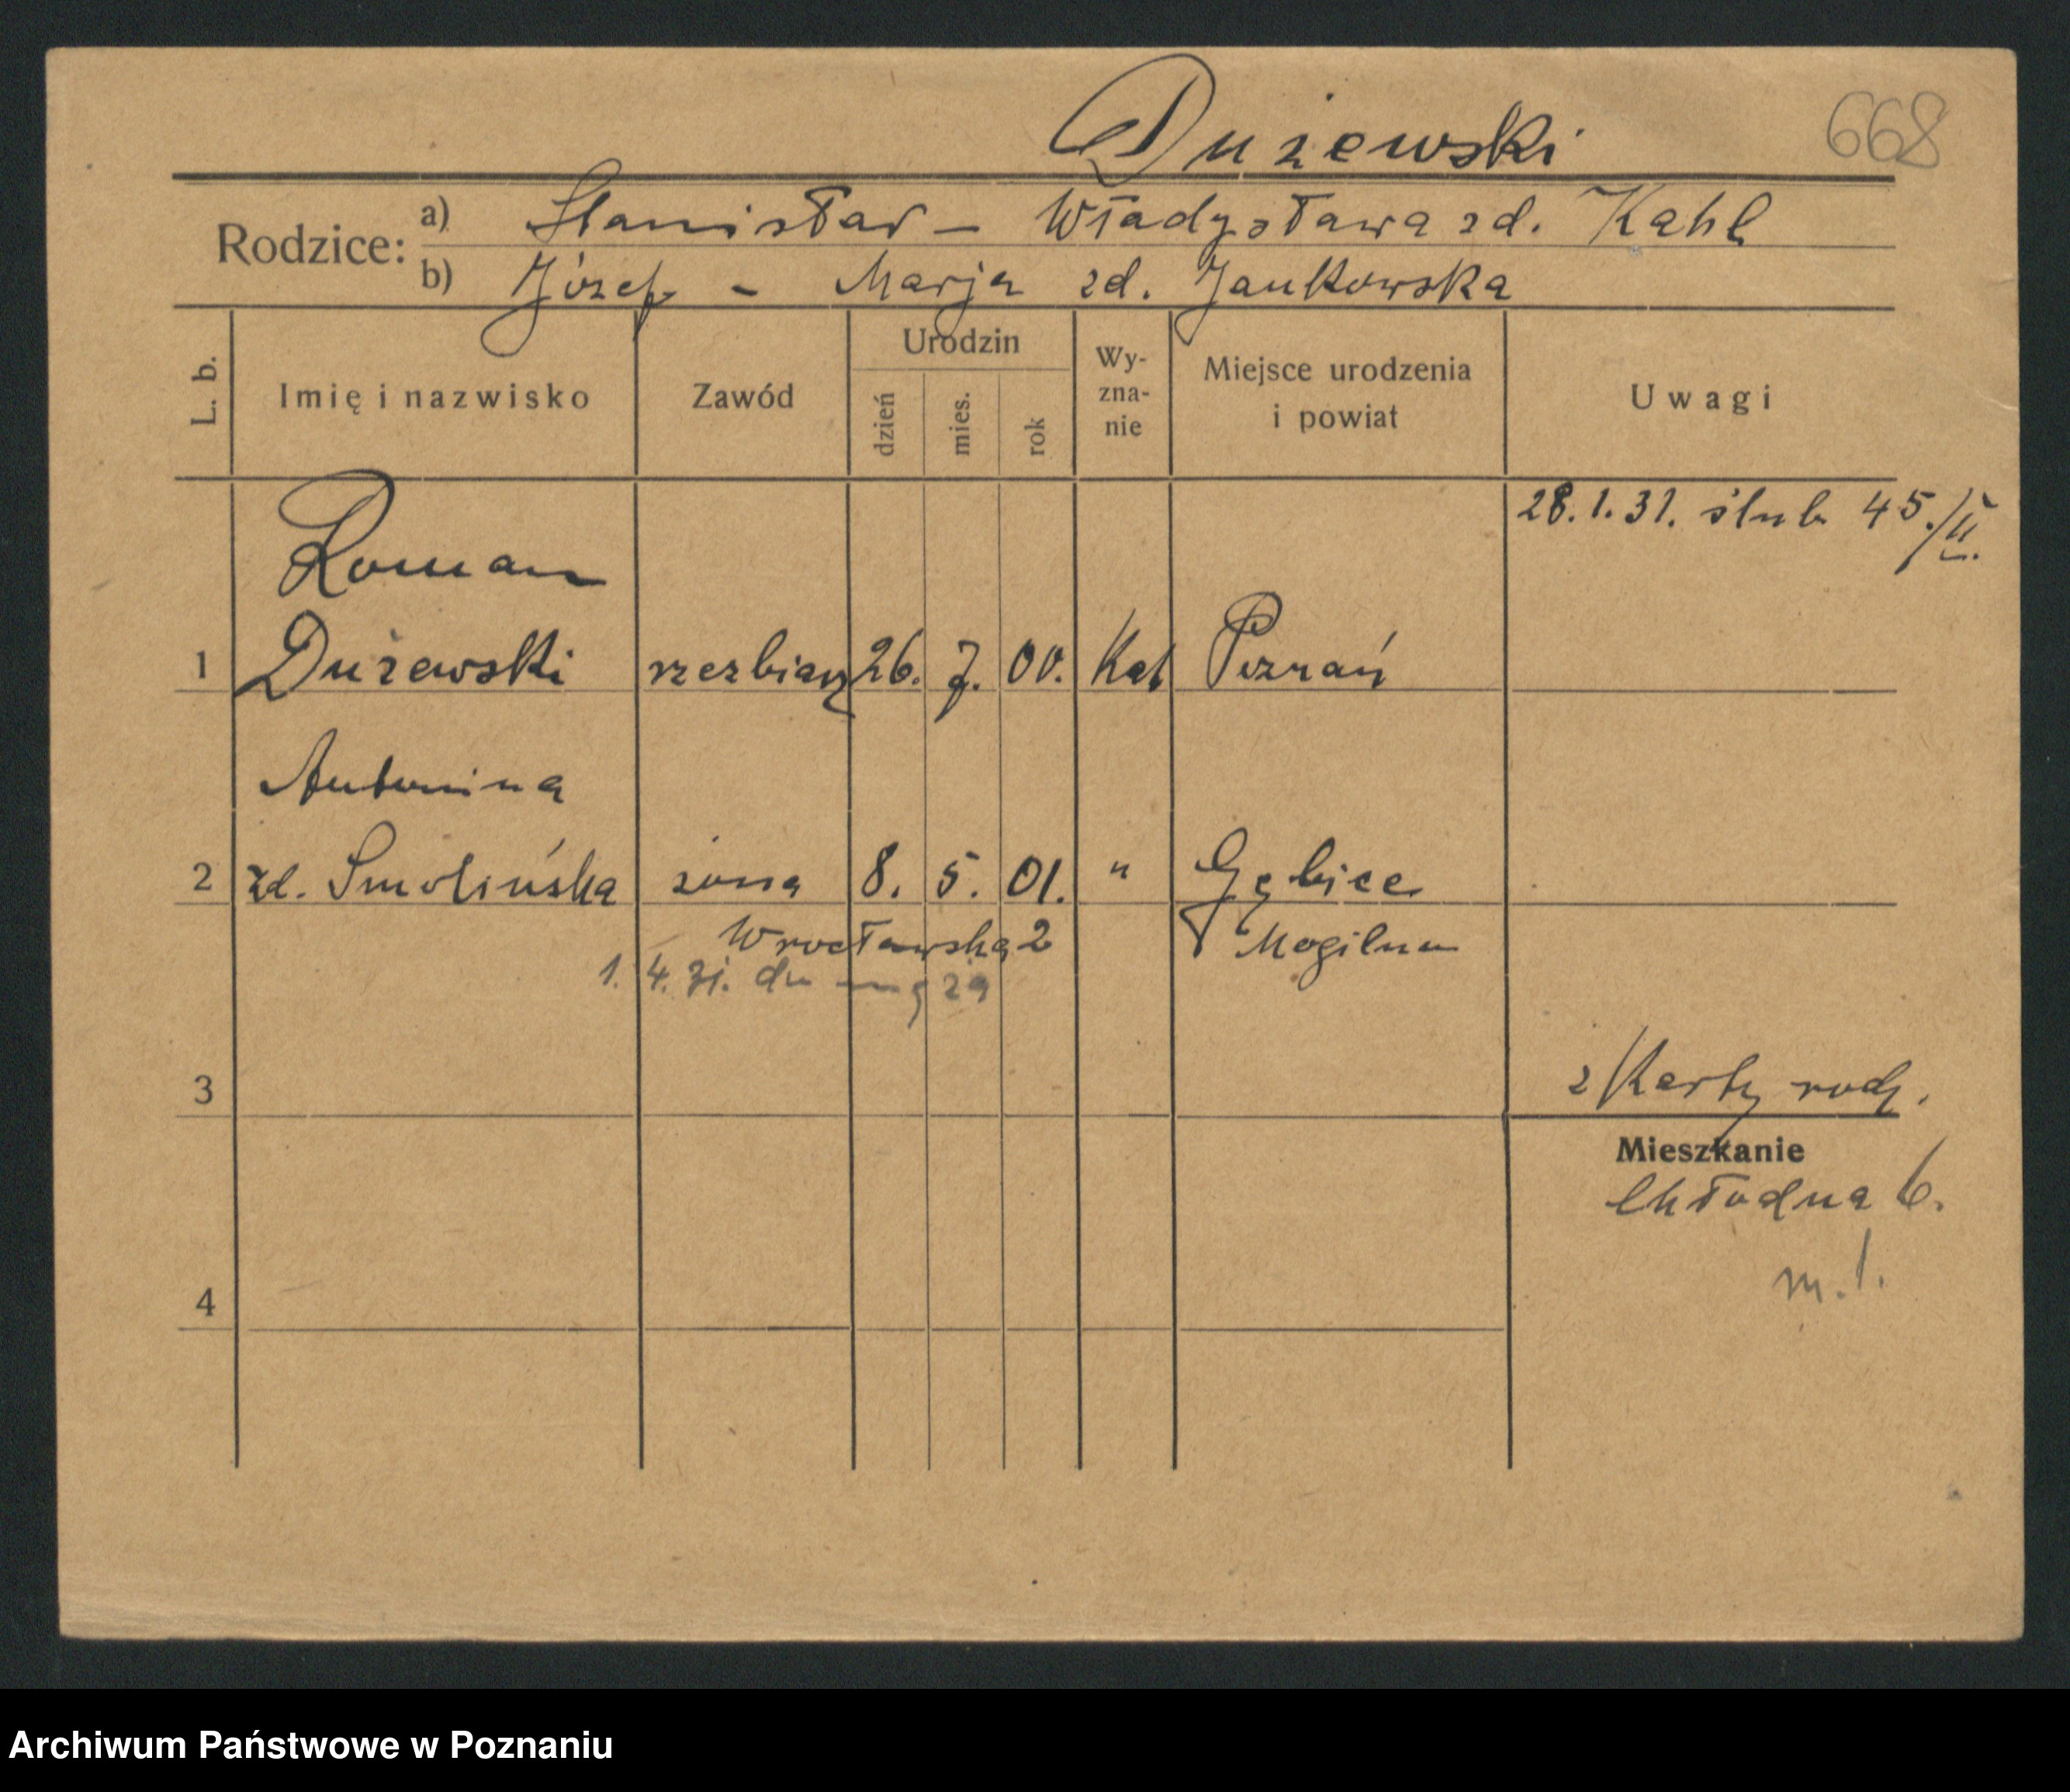 Dużewski 668
Rodzice: a) Stanisław – Władysława zd. Kahl
b) Józef – Marja zd. Jankowska
L. b.
Imię i nazwisko
Zawód
Urodzin
dzień
mies.
rok
Wy-
zna-
nie
Miejsce urodzenia
i powiat
Uwagi
28.1.31. ślub 45./II.
Roman
1 Dużewski rzezbiarz 26. 7. 00. Kat Poznań
Antonina
2 zd. Smolińska żona 8. 5. 01. " Gębice
Wrocławska 2 Mogilno
1. 4. 31. do męża
3
z Karty rodz.
Mieszkanie
Chłodna 6.
m. 1.
4
Archiwum Państwowe w Poznaniu